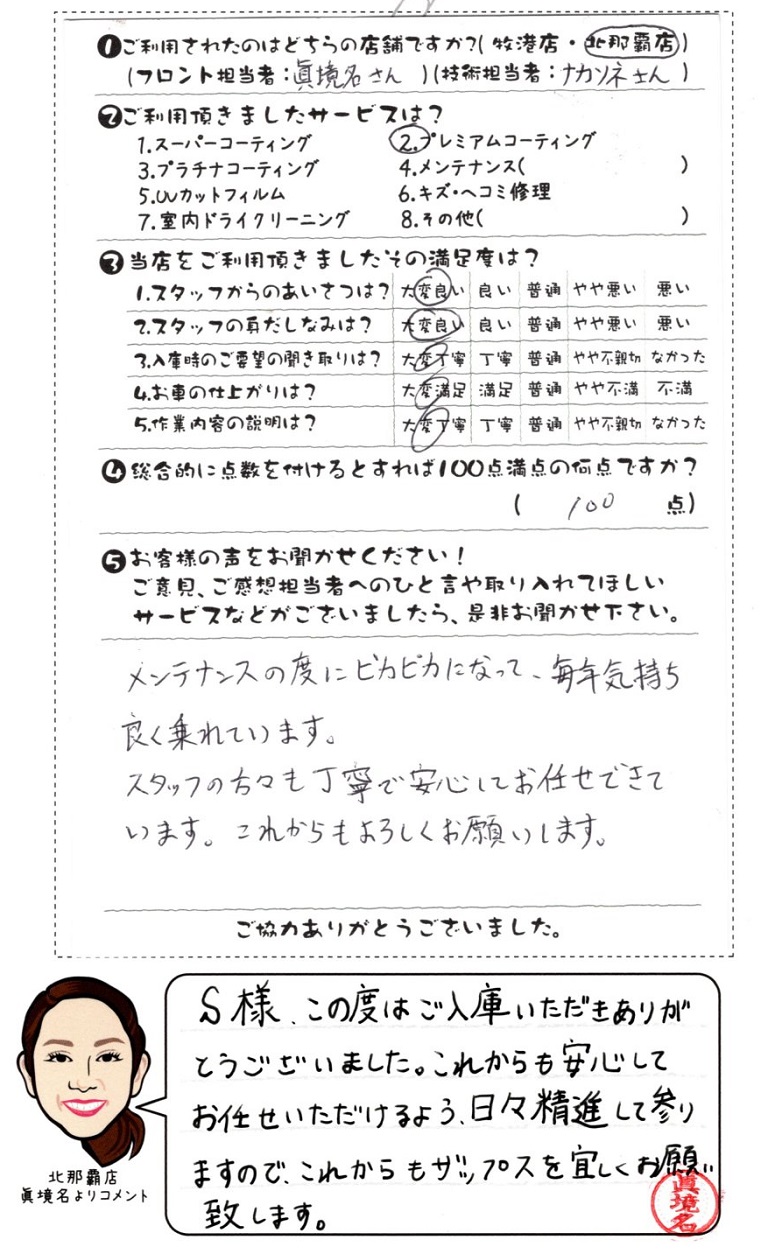 ❶ご利用されたのはどちらの店舗ですか?(牧港店・北那覇店)
(フロント担当者:眞境名さん)(技術担当者:ナカソネさん)
❷ご利用頂きましたサービスは?
1.スーパーコーティング 2.プレミアムコーティング
3.プラチナコーティング 4.メンテナンス( )
5.UVカットフィルム 6.キズ・ヘコミ修理
7.室内ドライクリーニング 8.その他( )
❸当店をご利用頂きましたその満足度は?
1.スタッフからのあいさつは? 大変良い 良い 普通 やや悪い 悪い
2.スタッフの身だしなみは? 大変良い 良い 普通 やや悪い 悪い
3.入庫時のご要望の聞き取りは? 大変丁寧 丁寧 普通 やや不親切 なかった
4.お車の仕上がりは? 大変満足 満足 普通 やや不満 不満
5.作業内容の説明は? 大変丁寧 丁寧 普通 やや不親切 なかった
❹総合的に点数を付けるとすれば100点満点の何点ですか?
( 100 点)
❺お客様の声をお聞かせください!
ご意見、ご感想担当者へのひと言や取り入れてほしい
サービスなどがございましたら、是非お聞かせ下さい。
メンテナンスの度にピカピカになって、毎年気持ち
良く乗れています。
スタッフの方々も丁寧で安心してお任せできて
います。これからもよろしくお願いします。
ご協力ありがとうございました。
S様、この度はご入庫いただきありが
とうございました。これからも安心して
お任せいただけるよう、日々精進して参り
ますので、これからもザップスを宜しくお願い
致します。
眞境名
北那覇店
眞境名よりコメント